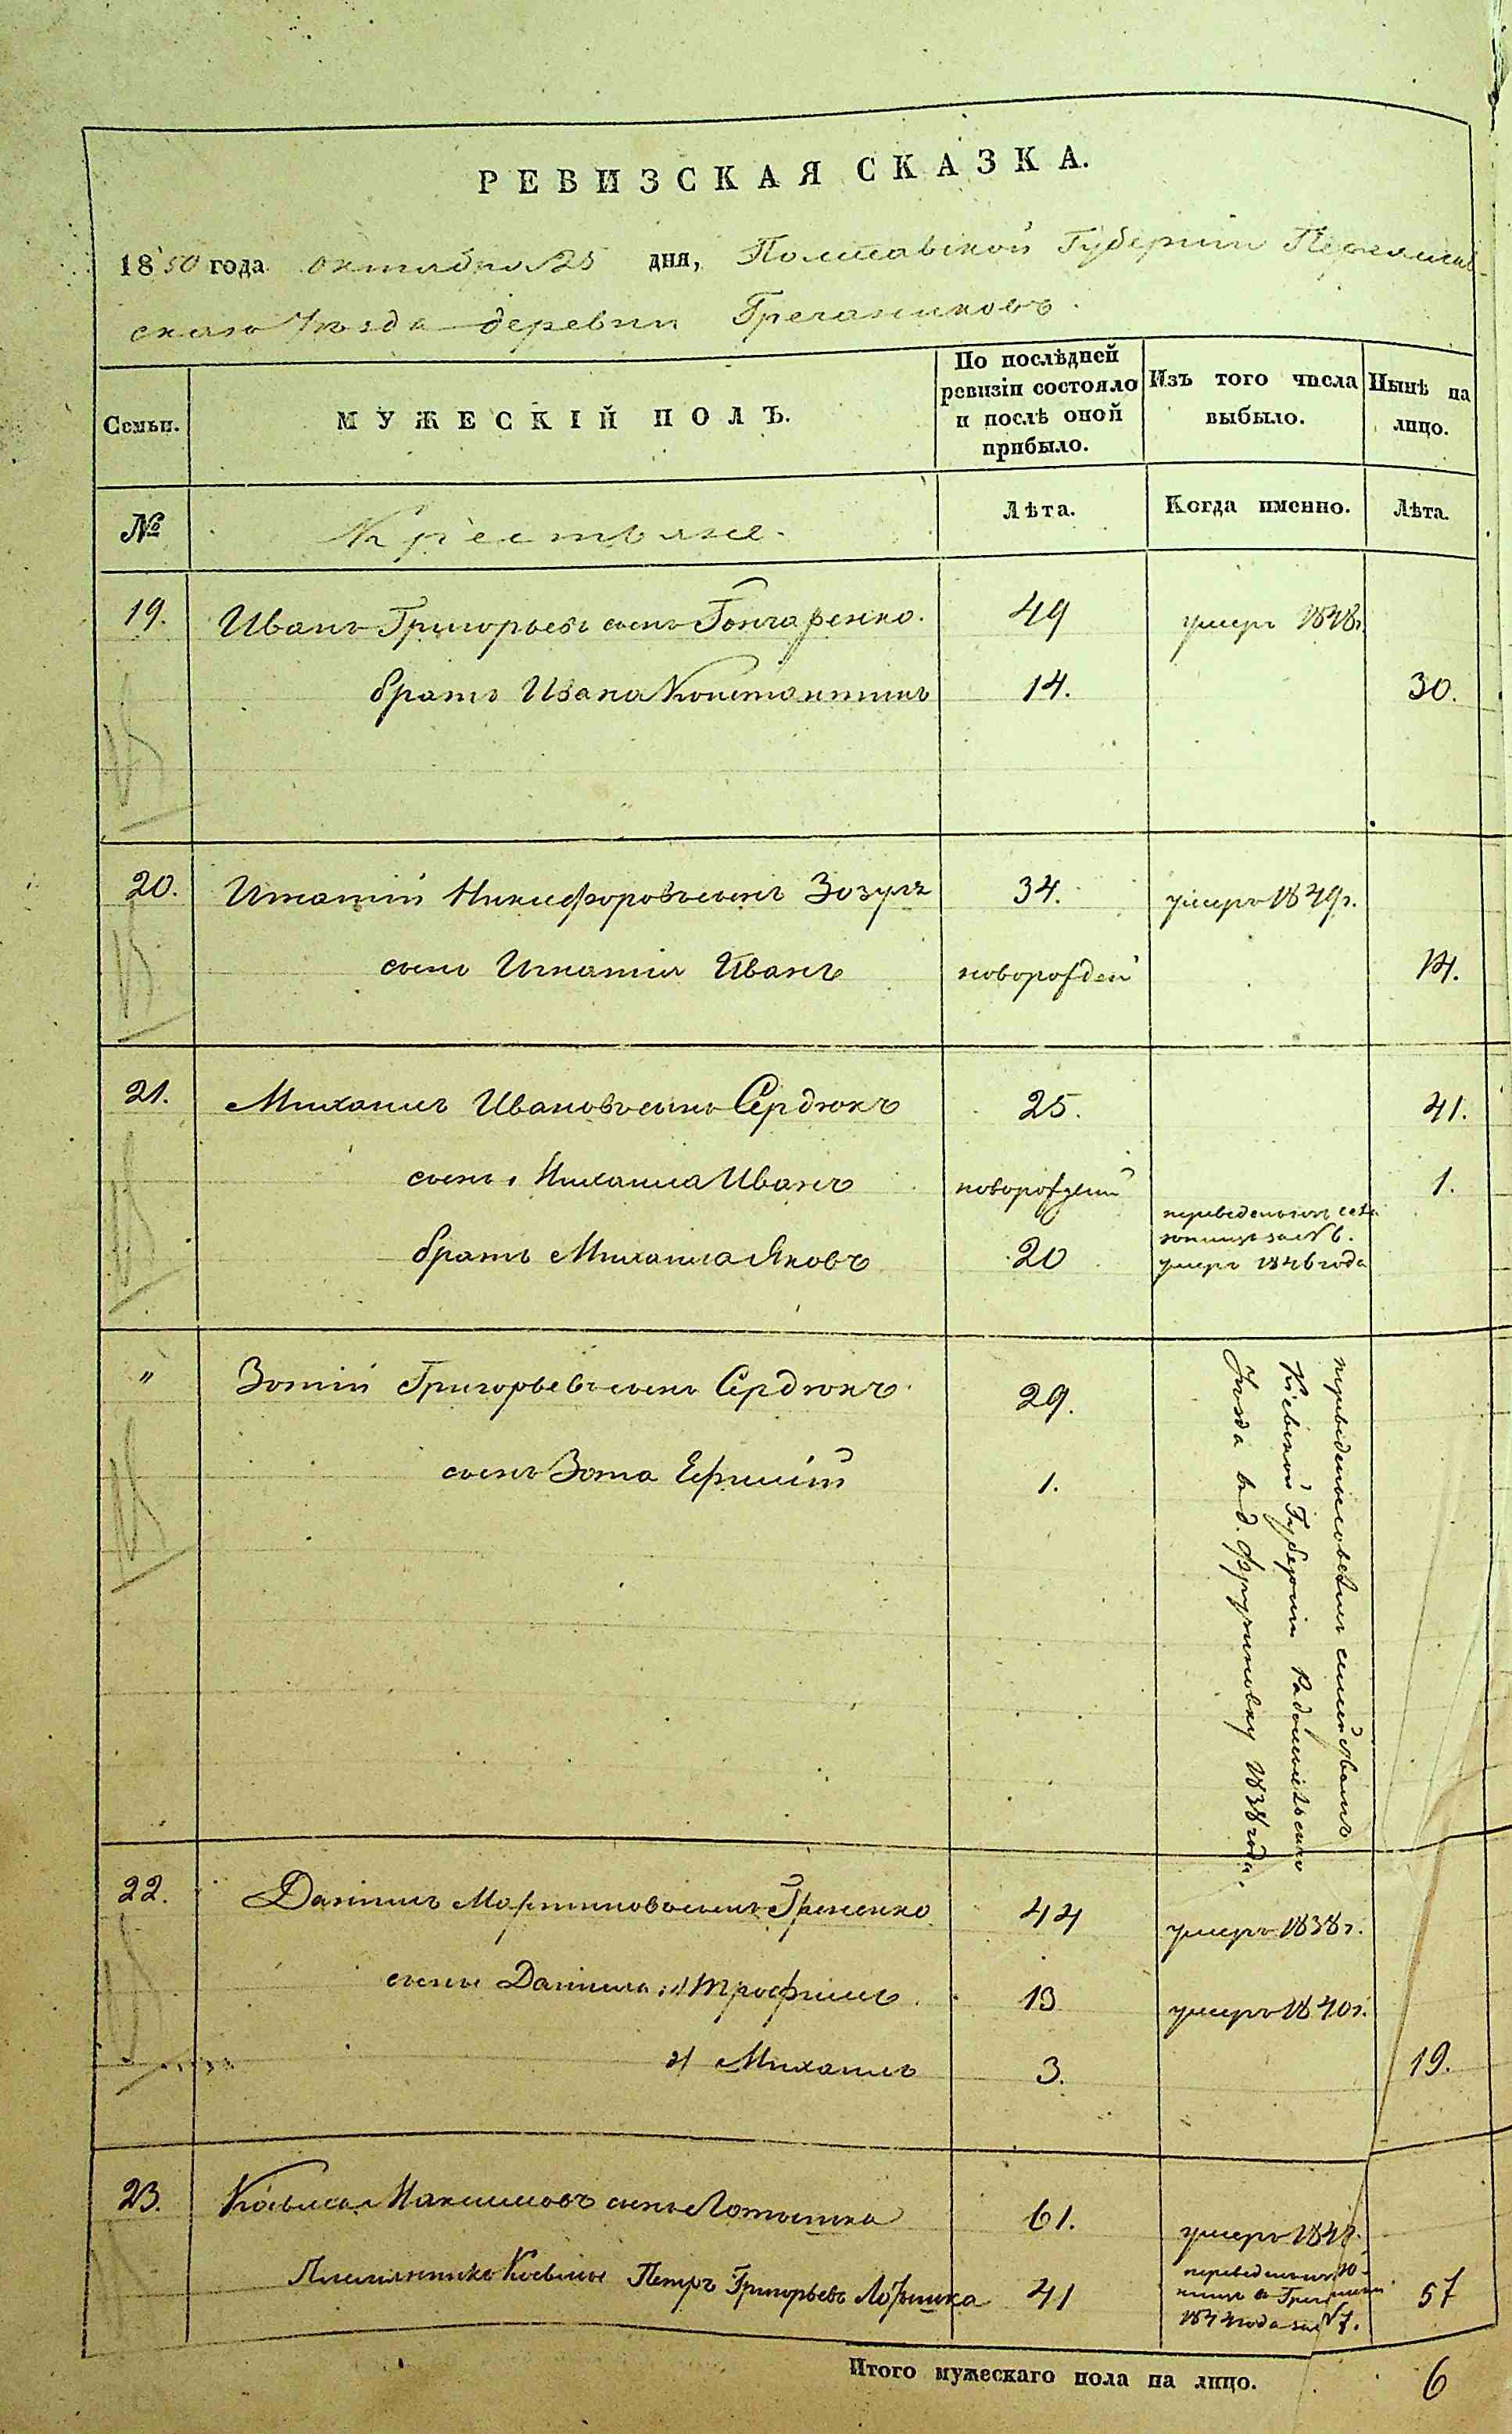 РЕВИЗСКАЯ СКАЗКА.
1850 года октября 25 дня, Полтавской Губернии Переяслав-
скаго Уѣзда деревни Гречаниковъ.
Семьи.
МУЖЕСКІЙ ПОЛЪ.
По послѣдней
ревизіи состояло
и послѣ оной
прибыло.
Изъ того числа
выбыло.
Нынѣ на
лицо.
№
Крестьяне.
Лѣта.
Когда именно.
Лѣта.
19. Иванъ Григорьевъ сынъ Гончаренко. 49 умеръ 1848г.
братъ Ивана Константинъ 14. 30.
20. Игнатій Никифоровъ сынъ Зозуля 34. умеръ 1849г.
сынъ Игнатія Иванъ новорожден 14.
21. Михаилъ Ивановъ сынъ Сердюкъ 25. 41.
сынъ Михаила Иванъ новорожденій 1.
братъ Михаила Яковъ 20 умеръ 1846 года
" Зотій Григорьевъ сынъ Сердюкъ 29.
сынъ Зота Ефимій 1.
переведенъ со всѣмъ семействомъ
Кіевской Губерніи Радомысльскаго
Уѣзда въ д. Фрузиновку 1838 года.
22. Даніилъ Мартиновъ сынъ Гречко 44 умеръ 1838г.
сыны Даніила 1 Трофимъ 13 умеръ 1840г.
2 Михаилъ 3. 19.
23. Косьма Максимовъ сынъ Лотышка 61. умеръ
Племянникъ Косьмы Петръ Григорьевъ Лотышка 41 57
Итого мужескаго пола на лицо. 6